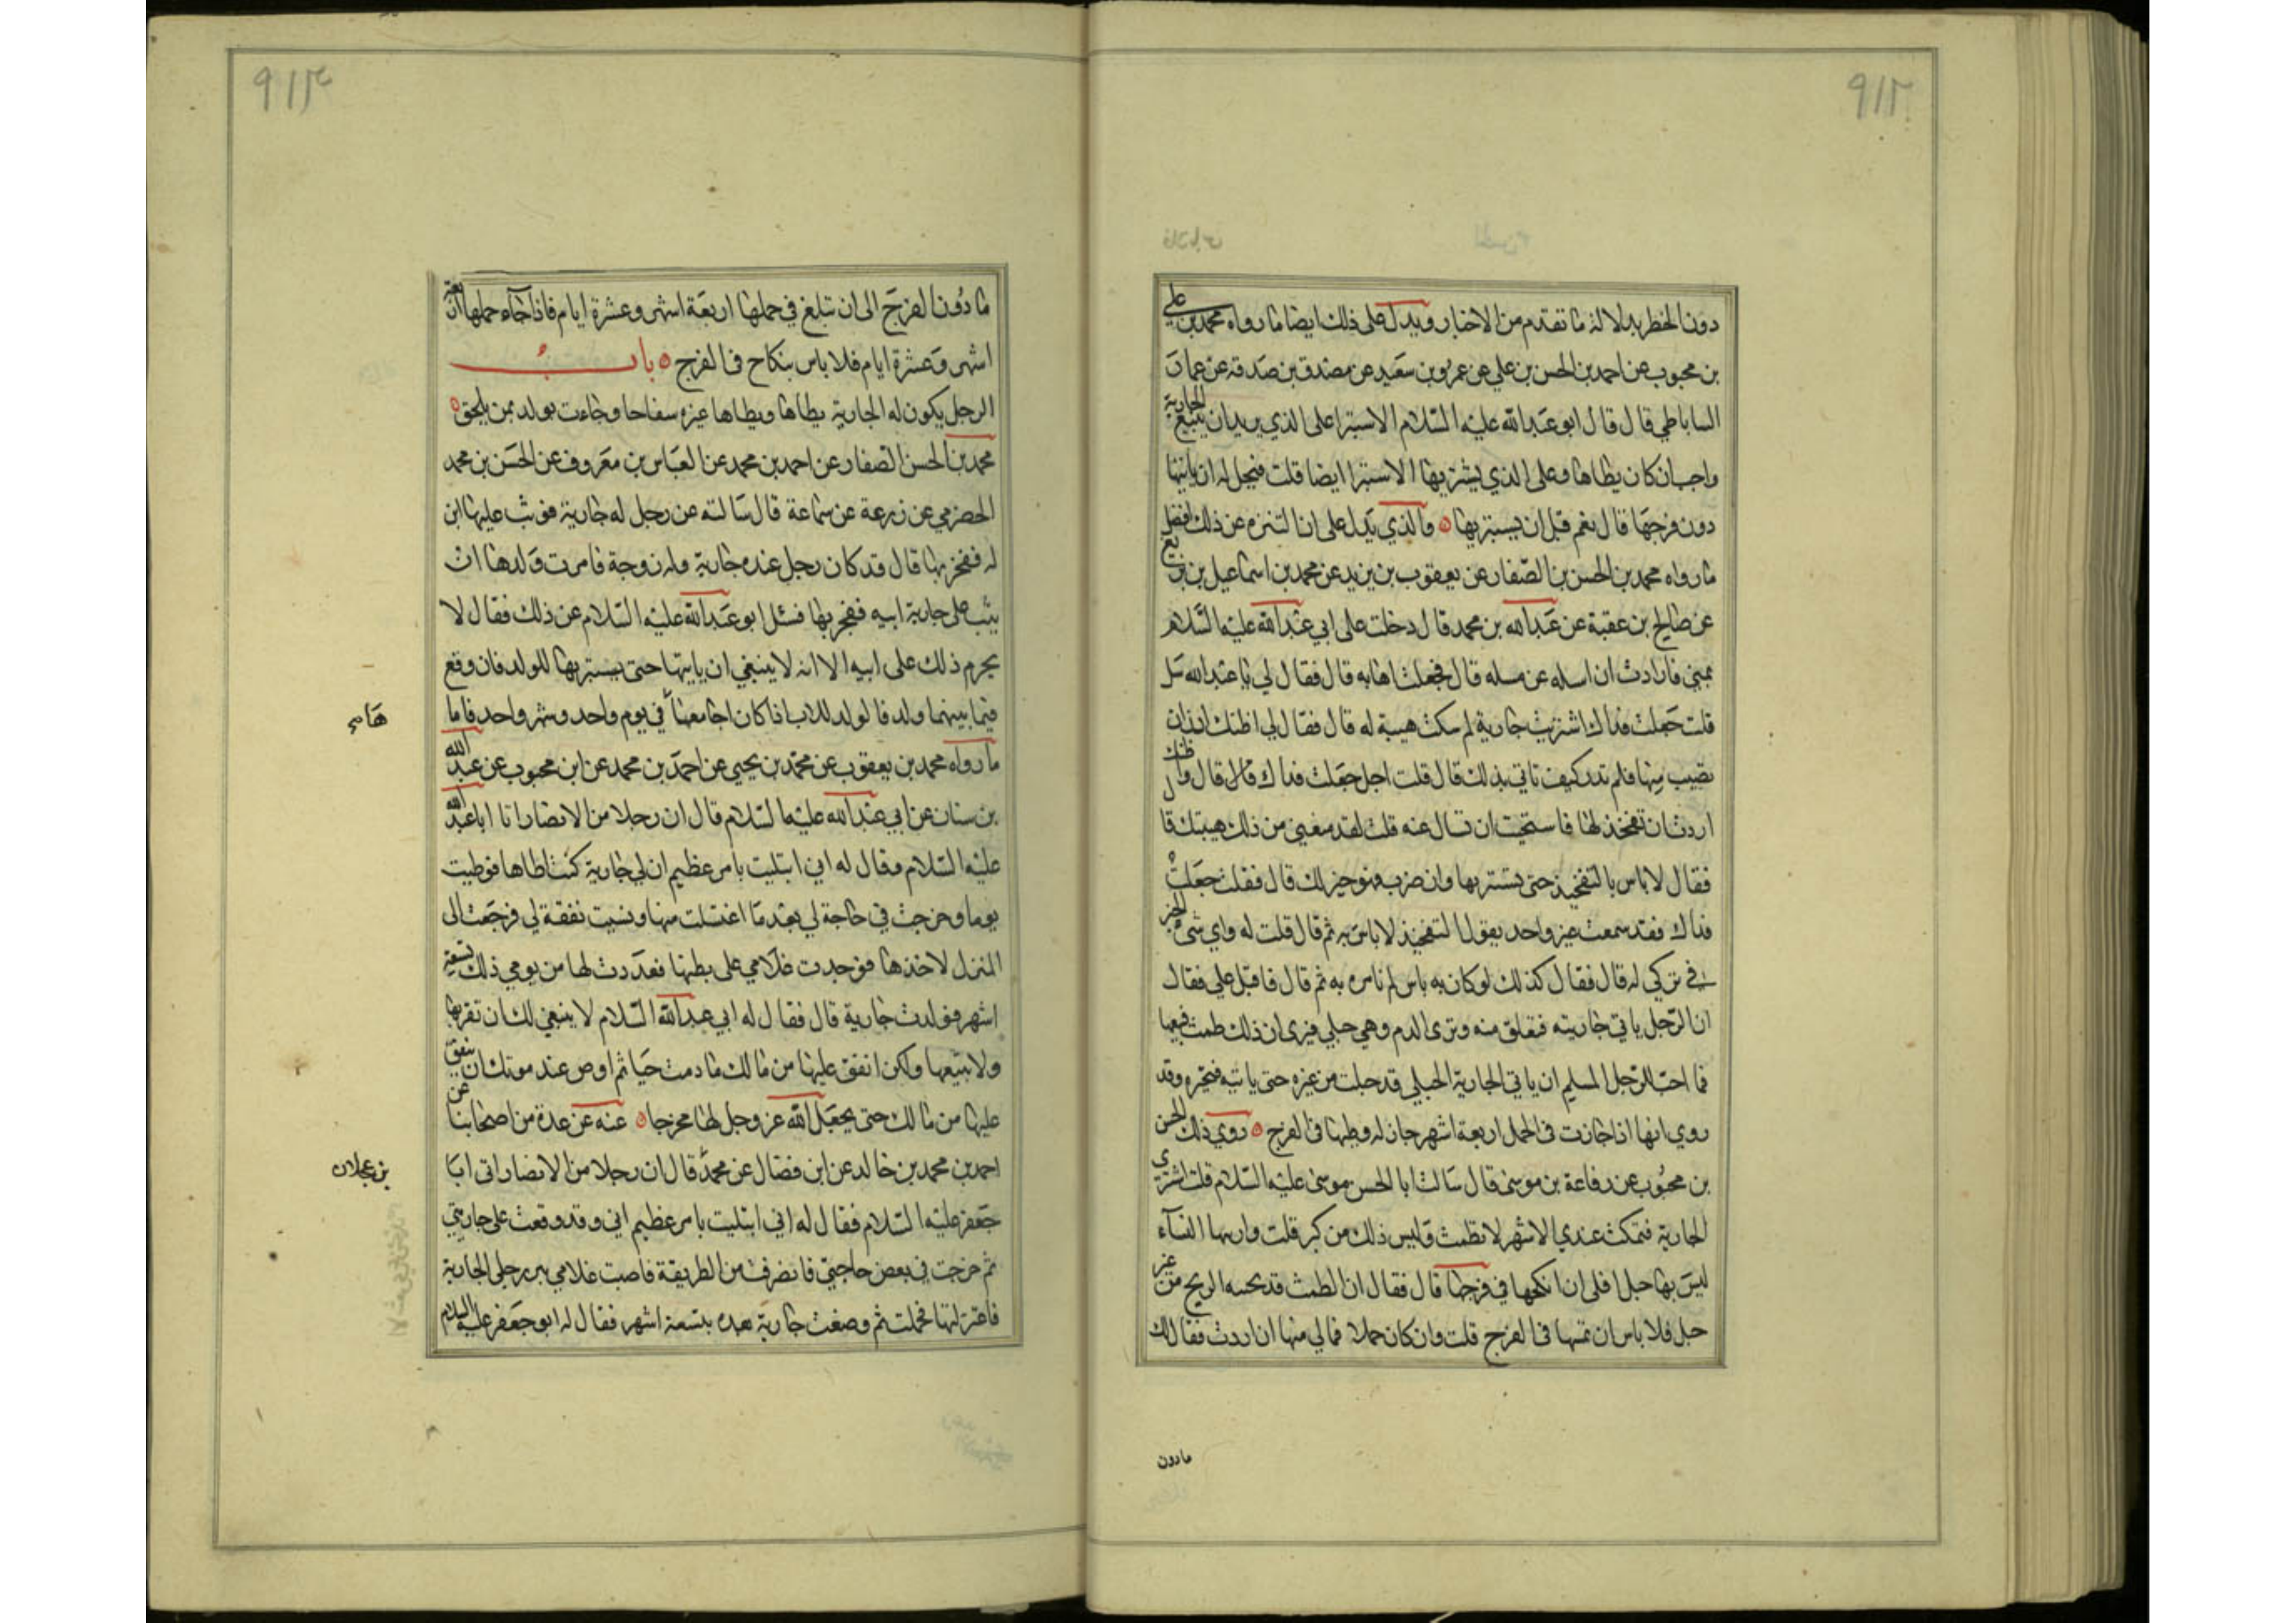 ٩١٢
دون الحظر بدلالة ما تقدم من الاخبار ويدل على ذلك ايضا ما رواه محمد بن علي
بن محبوب عن احمد بن الحسن بن علي عن عمرو بن سعيد عن مصدق بن صدقة عن عمار
الساباطي قال قال ابو عبد الله عليه السلام الاستبرا على الذي يريد ان يبيع الجارية
واجب ان كان يطاها وعلى الذي يشتريها الاستبرا ايضا قلت فيحل له ان ياتيها
دون فرجها قال نعم قبل ان يستبريها ه والذي يدل على ان التنزه عن ذلك افضل
ما رواه محمد بن الحسن بن الصفار عن يعقوب بن يزيد عن محمد بن اسماعيل بن بزيع
عن صالح بن عقبة عن عبد الله بن محمد قال دخلت على ابي عبد الله عليه السلام
بمنى فاردت ان اسله عن مسله قال فجعلت اهابه قال فقال لي يا عبد الله سل
قلت جعلت فداك اشتريت جارية ثم سكت هيبة له قال فقال لي اظنك اردت ان
تصيب منها فلم تدر كيف تاتي بذلك قال قلت اجل جعلت فداك قال قال واظنك
اردت ان تفخذ لها فاستحيت ان تسال عنه قلت لقد منعني من ذلك هيبتك قال
فقال لا باس بالتفخيذ حتى تستبريها وان صرب فهو خير لك قال فقلت جعلت
فداك فقد سمعت غير واحد يقول التفخيذ لا باس به ثم قال قلت له واي شئ الخير
في تركي له قال فقال كذلك لو كان به باس لم نامر به ثم قال فاقبل علي فقال
ان الرجل ياتي جاريته فتعلق منه وترى الدم وهي حبلى فيرى ان ذلك طمث فيبيعها
فما احب للرجل المسلم ان ياتي الجارية الحبلى قد حبلت من غيره حتى ياتيه فيخبره وقد
روي انها اذا جازت في الحمل اربعة اشهر جاز له وطيها في الفرج ه روى ذلك الحسن
بن محبوب عن رفاعة بن موسى قال سالت ابا الحسن موسى عليه السلام قلت اشتري
الجارية فتمكث عندي الاشهر لا تطمث وليس ذلك من كبر قلت واريها النساء
ليس بها حبل افلي ان انكحها في فرجها قال فقال ان الطمث قد يحبسه الريح من غير
حبل فلا باس ان تمسها في الفرج قلت وان كان حملا فما لي منها ان اردت فقال لك
مادون
٩١٣
ما دون الفرج الى ان تبلغ في حملها اربعة اشهر وعشرة ايام فاذا جاء حملها اربعة
اشهر وعشرة ايام فلا باس بنكاح في الفرج ه باب
الرجل يكون له الجارية يطاها ويطاها غيره سفاحا وجاءت بولد بمن يلحق ه
محمد بن الحسن الصفار عن احمد بن محمد عن العباس بن معروف عن الحسن بن محمد
الحضرمي عن زرعة عن سماعة قال سالته عن رجل له جارية فوثب عليها ابن
له ففجر بها قال قد كان رجل عنده جارية وله زوجة فامرت ولدها ان
يثب على جارية ابيه ففجر بها فسئل ابو عبد الله عليه السلام عن ذلك فقال لا
يحرم ذلك على ابيه الا انه لا ينبغي ان ياتيها حتى يستبريها للولد فان وقع
فيما بينهما ولد فالولد للاب اذا كان اجامعها في يوم واحد وشهر واحد فاما
ما رواه محمد بن يعقوب عن محمد بن يحيى عن احمد بن محمد عن ابن محبوب عن عبد الله
بن سنان عن ابي عبد الله عليه السلام قال ان رجلا من الانصار اتا ابا عبد الله
عليه السلام وقال له اني ابتليت بامر عظيم ان لي جارية كنت اطاها فوطيت
يوما وخرجت في حاجة لي بعد ما اغتسلت منها ونسيت نفقة لي فرجعت الى
المنزل لاخذها فوجدت غلامي على بطنها فعددت لها من يومي ذلك تسعة
اشهر فولدت جارية قال فقال له ابي عبد الله السلام لا ينبغي لك ان تقربها
ولا تبيعها ولكن انفق عليها من مالك ما دمت حيا ثم اوص عند موتك ان ينفق
عليها من مالك حتى يجعل الله عز وجل لها مخرجا ه عنه عن عدة من اصحابنا عن
احمد بن محمد بن خالد عن ابن فضال عن محمد قال ان رجلا من الانصار اتى ابا
بن عجلان
جعفر عليه السلام فقال له اني ابتليت بامر عظيم اني وقد وقعت على جاريتي
ثم خرجت في بعض حاجتي فانصرفت من الطريقة فاصبت غلامي بين رجلي الجارية
فاعتزلتها فحملت ثم وضعت جارية بعده بتسعة اشهر فقال له ابو جعفر عليه السلام